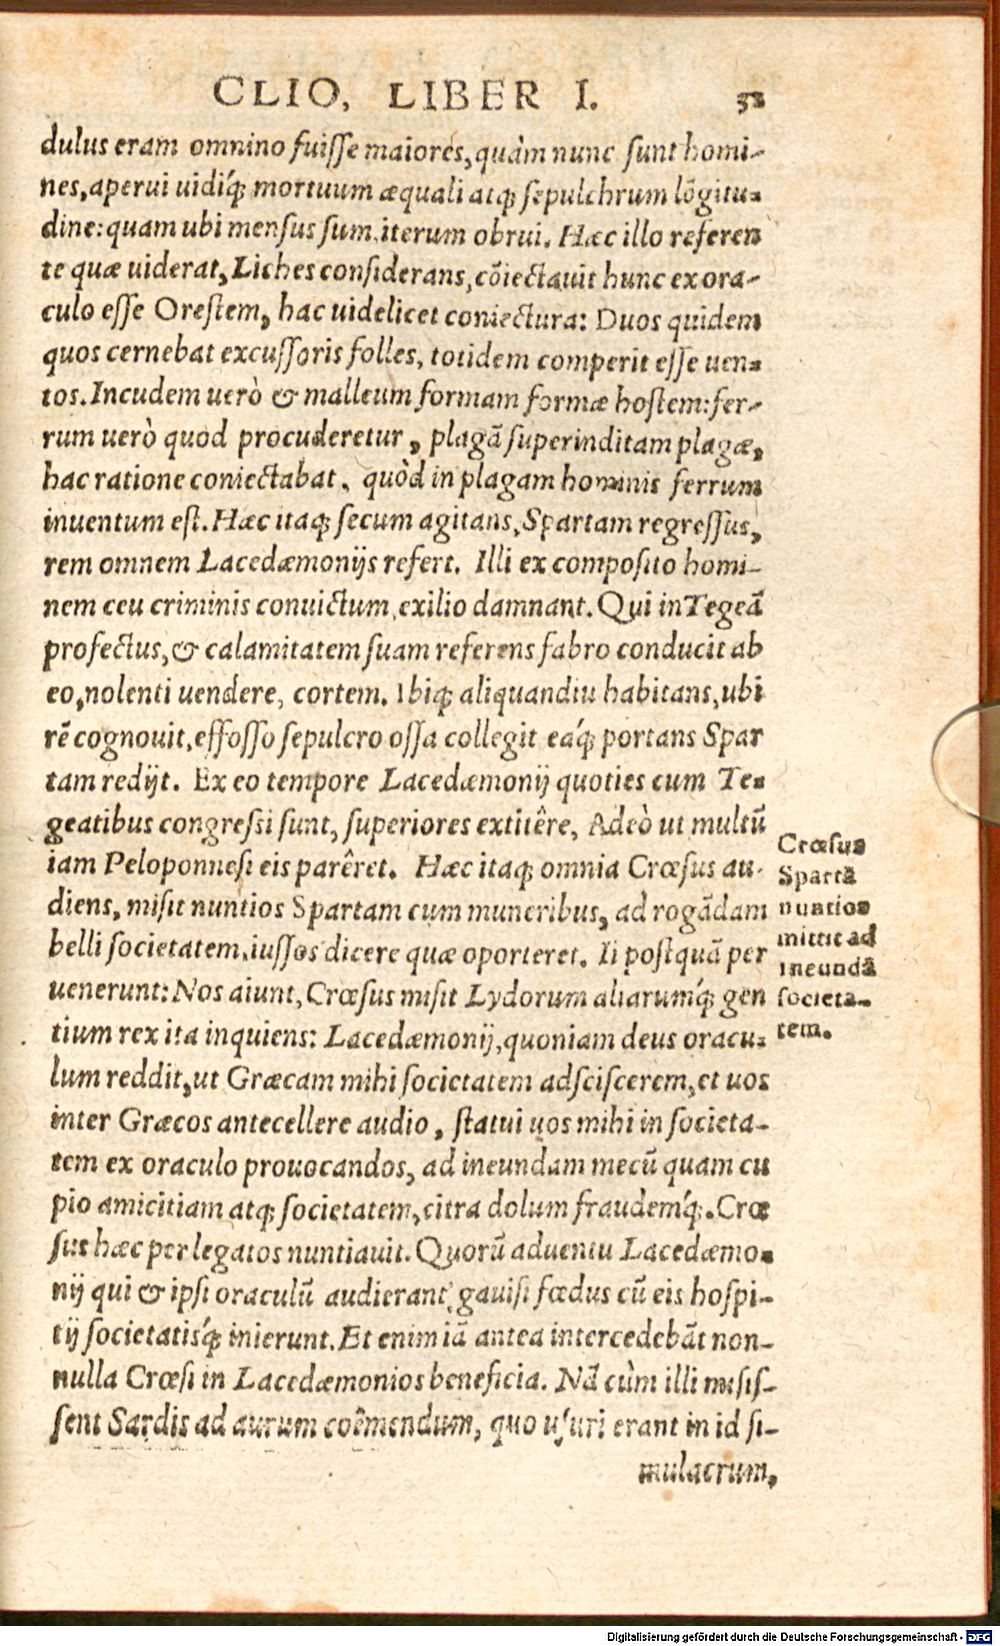 CLIO, LIBER I. 32
dulus eram omnino fuiſſe maiores, quàm nunc ſunt homi-
nes, aperui uidiq́; mortuum æquali atq; ſepulchrum lõgitu-
dine: quam ubi menſus ſum, iterum obrui. Hæc illo referen
te quæ uiderat, Liches conſiderans, cõiectauit hunc ex ora-
culo eſſe Oreſtem, hac uidelicet coniectura: Duos quidem
quos cernebat excuſſoris folles, totidem comperit eſſe uen-
tos. Incudem uerò & malleum formam formæ hoſtem: fer-
rum uerò quod procuderetur, plagã ſuperinditam plagæ,
hac ratione coniectabat, quòd in plagam hominis ferrum
inuentum eſt. Hæc itaq; ſecum agitans, Spartam regreſſus,
rem omnem Lacedæmonijs refert. Illi ex compoſito homi-
nem ceu criminis conuictum, exilio damnant. Qui in Tegeã
profectus, & calamitatem ſuam referens fabro conducit ab
eo, nolenti uendere, cortem. Ibiq; aliquandiu habitans, ubi
rẽ cognouit, effoſſo ſepulcro oſſa collegit eáq; portans Spar
tam redijt. Ex eo tempore Lacedæmonij quoties cum Te-
geatibus congreſſi ſunt, ſuperiores extitêre, Adeò ut multũ
iam Peloponneſi eis parêret. Hæc itaq; omnia Crœſus au-
diens, miſit nuntios Spartam cum muneribus, ad rogãdam
belli ſocietatem, iuſſos dicere quæ oporteret. Ii poſtquã per
uenerunt: Nos aiunt, Crœſus miſit Lydorum aliarumq́; gen
tium rex ita inquiens: Lacedæmonij, quoniam deus oracu-
lum reddit, ut Græcam mihi ſocietatem adſciſcerem, et uos
inter Græcos antecellere audio, ſtatui uos mihi in ſocieta-
tem ex oraculo prouocandos, ad ineundam mecũ quam cu
pio amicitiam atq; ſocietatem, citra dolum fraudemq́;. Crœ
ſus hæc per legatos nuntiauit. Quorũ aduentu Lacedæmo-
nij qui & ipſi oraculũ audierant, gauiſi fœdus cũ eis hoſpi-
tij ſocietatisq́; inierunt. Et enim iã antea intercedebãt non-
nulla Crœſi in Lacedæmonios beneficia. Nã cùm illi miſiſ-
ſent Sardis ad aurum coêmendum, quo uſuri erant in id ſi-
mulacrum,
Crœſus
Spartã
nuntios
mittit ad
ineundã
ſocieta-
tem.
Digitalisierung gefördert durch die Deutsche Forschungsgemeinschaft - DFG